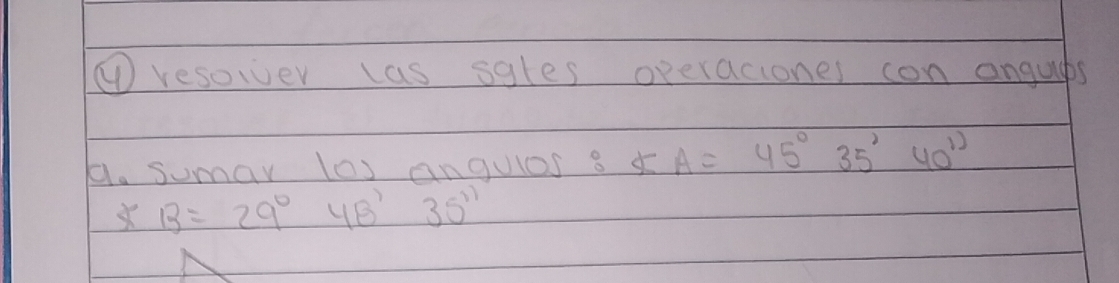 ④ resolver las sgtes operaciones con angulos
a. Sumar los angulos : ∢ A = 45° 35' 40''
∢ B = 29° 48' 35''